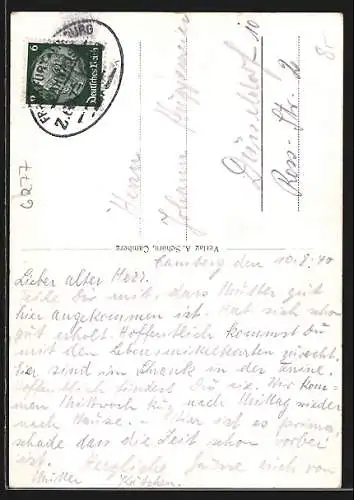 Camberg den 10.8.40
Lieber alter Herr.
Teile Dir mit, dass Mutter gut
hier angekommen ist. Hat sich schon
gut erholt. Hoffentlich kommst Du
mit den Lebensmittelkarten zurecht.
hier sind im Schrank in der
Hoffentlich findest Du sie. Wir kom-
men Mittwoch nach Mittag wieder
nach Hause. Hier ist es prima,
schade dass die Zeit schon vorbei
ist. Herzliche Grüsse auch von
Mutter Käthchen.
Verlag A. Schorn, Camberg
Herrn
Johann
Düsseldorf 10
Ross-Str. 2
8-
6277
6
Deutsches Reich